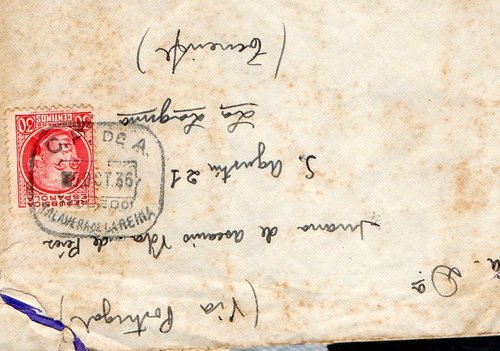 (Via Portugal)
Dª
Juana de Ascanio Vda de
S. Agustín 21
La Laguna
(Tenerife)
30 CENTIMOS 30
DE A.
OCT.36
TALAVERA DE LA REINA